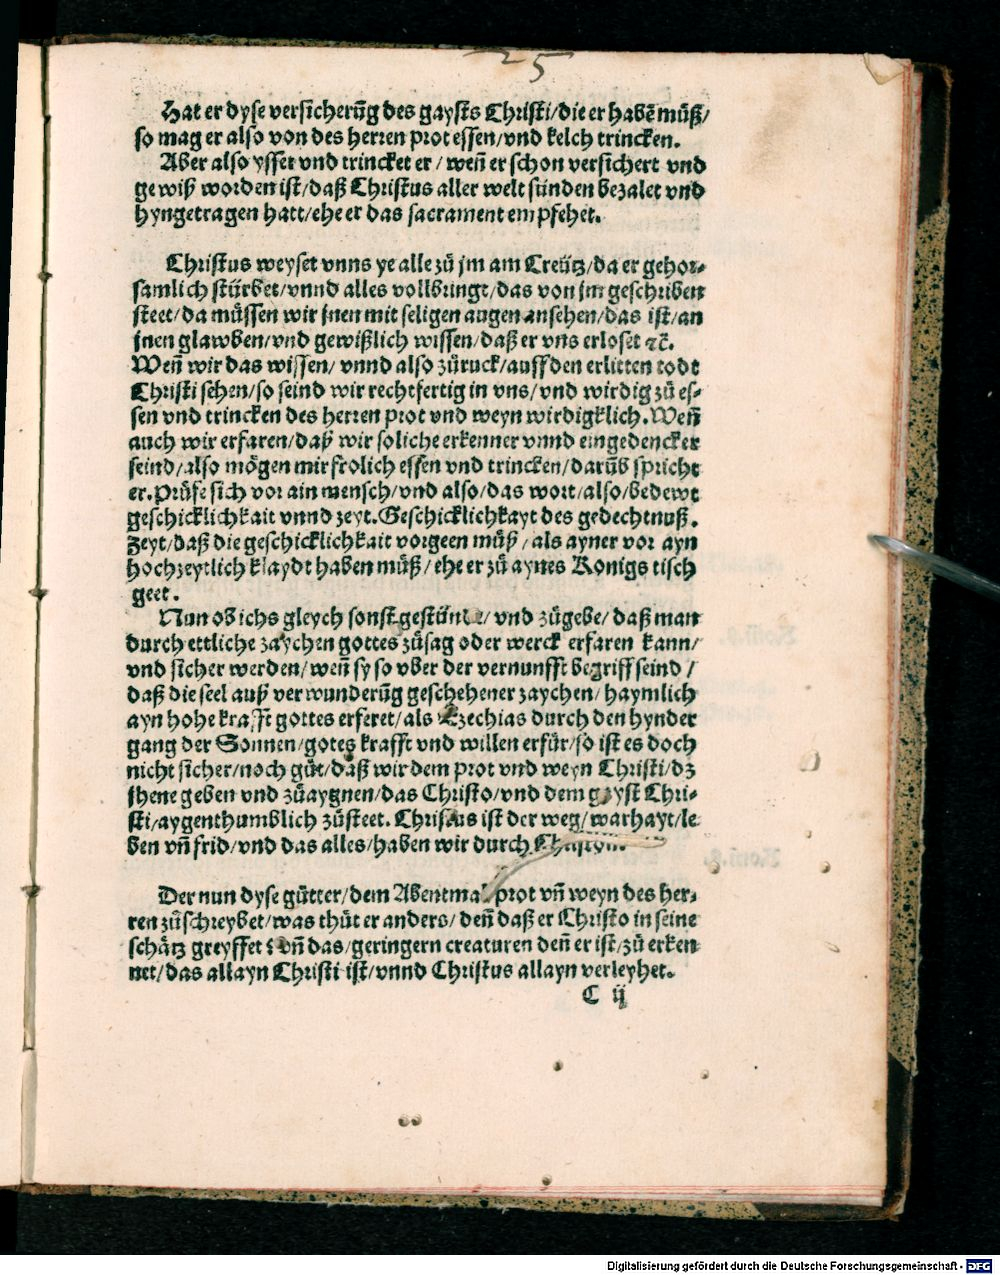 25
Hat er dyse versicherūg des gaysts Christi/die er habē müß/
so mag er also von des herren prot essen/vnd kelch trincken.
Aber also ysset vnd trincket er/ weñ er schon versichert vnd
gewiß worden ist/daß Christus aller welt sünden bezalet vnd
hyngetragen hatt/ehe er das sacrament empfehet.
Christus weyset vnns ye alle zů jm am Creütz/da er gehor-
samlich stürbet/vnnd alles vollbringt/das von jm geschriben
steet/da müssen wir jnen mit seligen augen ansehen/das ist/an
jnen glawben/vnd gewißlich wissen/daß er vns erloset ⁊c̄.
Weñ wir das wissen/ vnnd also zůruck/auff den erlitten todt
Christi sehen/so seind wir rechtfertig in vns/vnd wirdig zů es-
sen vnd trincken des herren prot vnd weyn wirdigklich. Weñ
auch wir erfaren/daß wir soliche erkenner vnnd eingedencker
seind/also mögen mir frolich essen vnd trincken/darūb spricht
er. Prüfe sich vor ain mensch/vnd also/das wort/also/bedewt
geschicklichkait vnnd zeyt. Geschicklichkayt des gedechtnuß.
Zeyt/daß die geschicklichkait vorgeen müß/ als ayner vor ayn
hochzeytlich klaydt haben müß/ehe er zů aynes Konigs tisch
geet.
Nun ob ichs gleych sonst gestünde/ vnd zůgebe/ daß man
durch ettliche zaychen gottes zůsag oder werck erfaren kann/
vnd sicher werden/weñ sy so vber der vernunfft begriff seind/
daß die seel auß verwunderūg geschehener zaychen/ haymlich
ayn hohe krafft gottes erferet/als Ezechias durch den hynder
gang der Sonnen/gotes krafft vnd willen erfür/so ist es doch
nicht sicher/noch güt/daß wir dem prot vnd weyn Christi/dz
jhene geben vnd zůaygnen/das Christo/vnd dem gayst Chri-
sti/aygenthumblich zůsteet. Christus ist der weg/warhayt/le
ben vñ frid/vnd das alles/haben wir durch Christon.
Der nun dyse gütter/dem Abentmal prot vñ weyn des her-
ren zůschreybet/was thůt er anders/ deñ daß er Christo in seine
schätz greyffet vñ das/geringern creaturen deñ er ist/zů erken-
net/das allayn Christi ist/vnnd Christus allayn verleyhet.
C ij
Digitalisierung gefördert durch die Deutsche Forschungsgemeinschaft - DFG